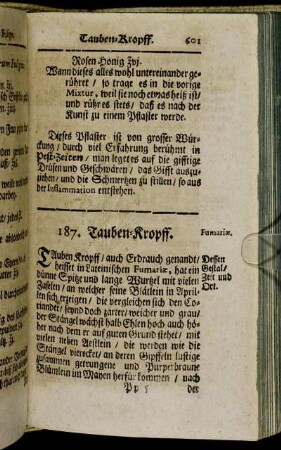 Tauben-Kropff. 601
Rosen-Honig ʒvj.
Wann dieses alles wohl untereinander ge-
rühret / so trage es in die vorige
Mixtur, weil sie noch etwas heiß ist /
und rührs es stets / daß es nach der
Kunst zu einem Pflaster werde.
Dieses Pflaster ist von grosser Wür-
ckung / durch viel Erfahrung berühmt in
Pest-Zeiten / man leget es auf die gifftige
Drüsen und Geschwären / das Gifft auszu-
ziehen / und die Schmertzen zu stillen / so aus
der Inflammation entstehen.
187. Tauben-Kropff.
Fumariæ.
TAuben Kropff / auch Erdrauch genandt /
heisset in Lateinischen Fumariæ, hat ein
dünne Spitze und lange Wurtzel mit vielen
Zaseln / an welcher seine Blätlein in April
sich erzeigen / die vergleichen sich den Co-
riander / seynd doch zarter / weicher und grau /
der Stängel wächst halb Ehlen hoch auch hö-
her nach dem er auf guten Grund stehet / mit
vielen neben Aestlein / die werden wie die
Stängel viereckt / an deren Gipffeln lustige
zusammen getrungene und Purperbraune
Blümlein im Mayen herfür kommen / nach
Dessen
Gestal/
Zeit und
Ort.
Pp 5 der